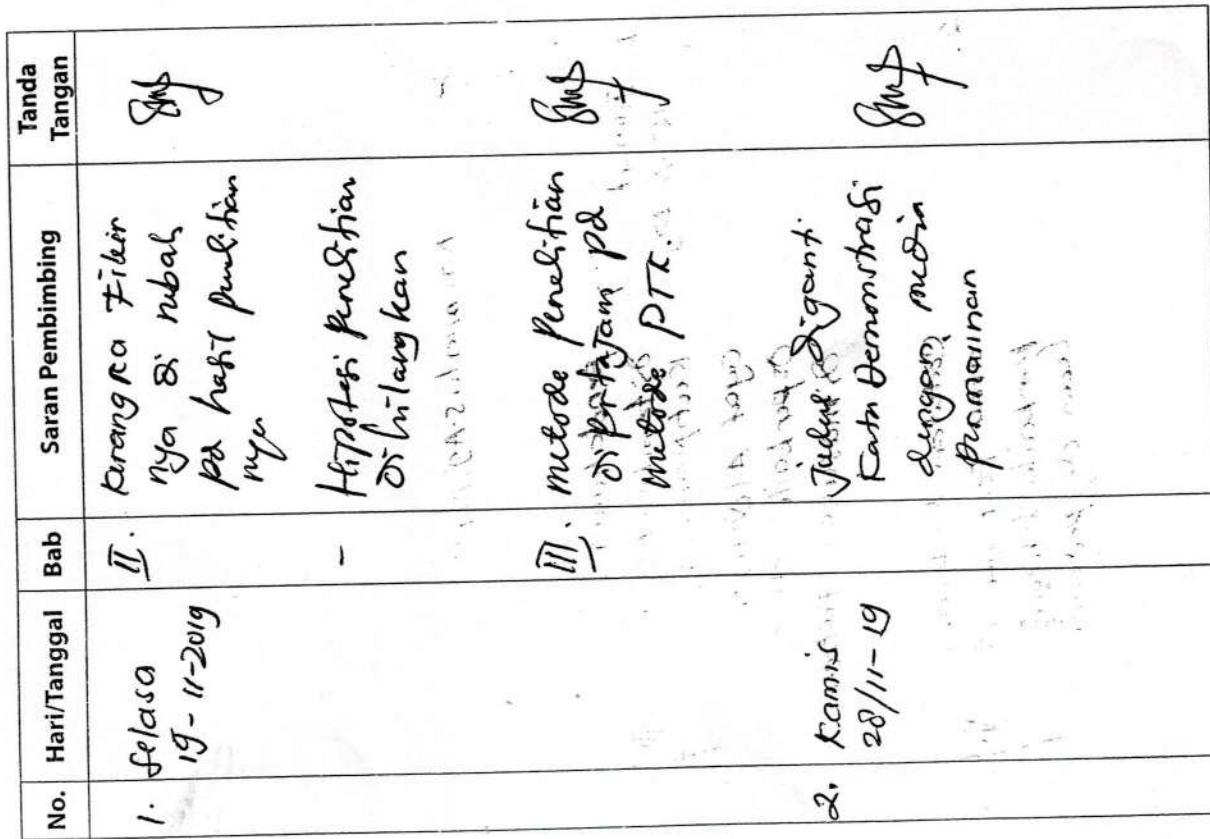 No.
Hari/Tanggal
Bab
Saran Pembimbing
Tanda
Tangan
1.
Selasa
19-11-2019
II.
Karangka Fikir
nya di rubah
pd hasil penelitian
nya
-
Hipotesi penelitian
di hilangkan
III.
metode penelitian
di pertajam pd
metode PTK.
2.
Kamis
28/11-19
Judul diganti
Kata Demonstrasi
dengan media
permainan